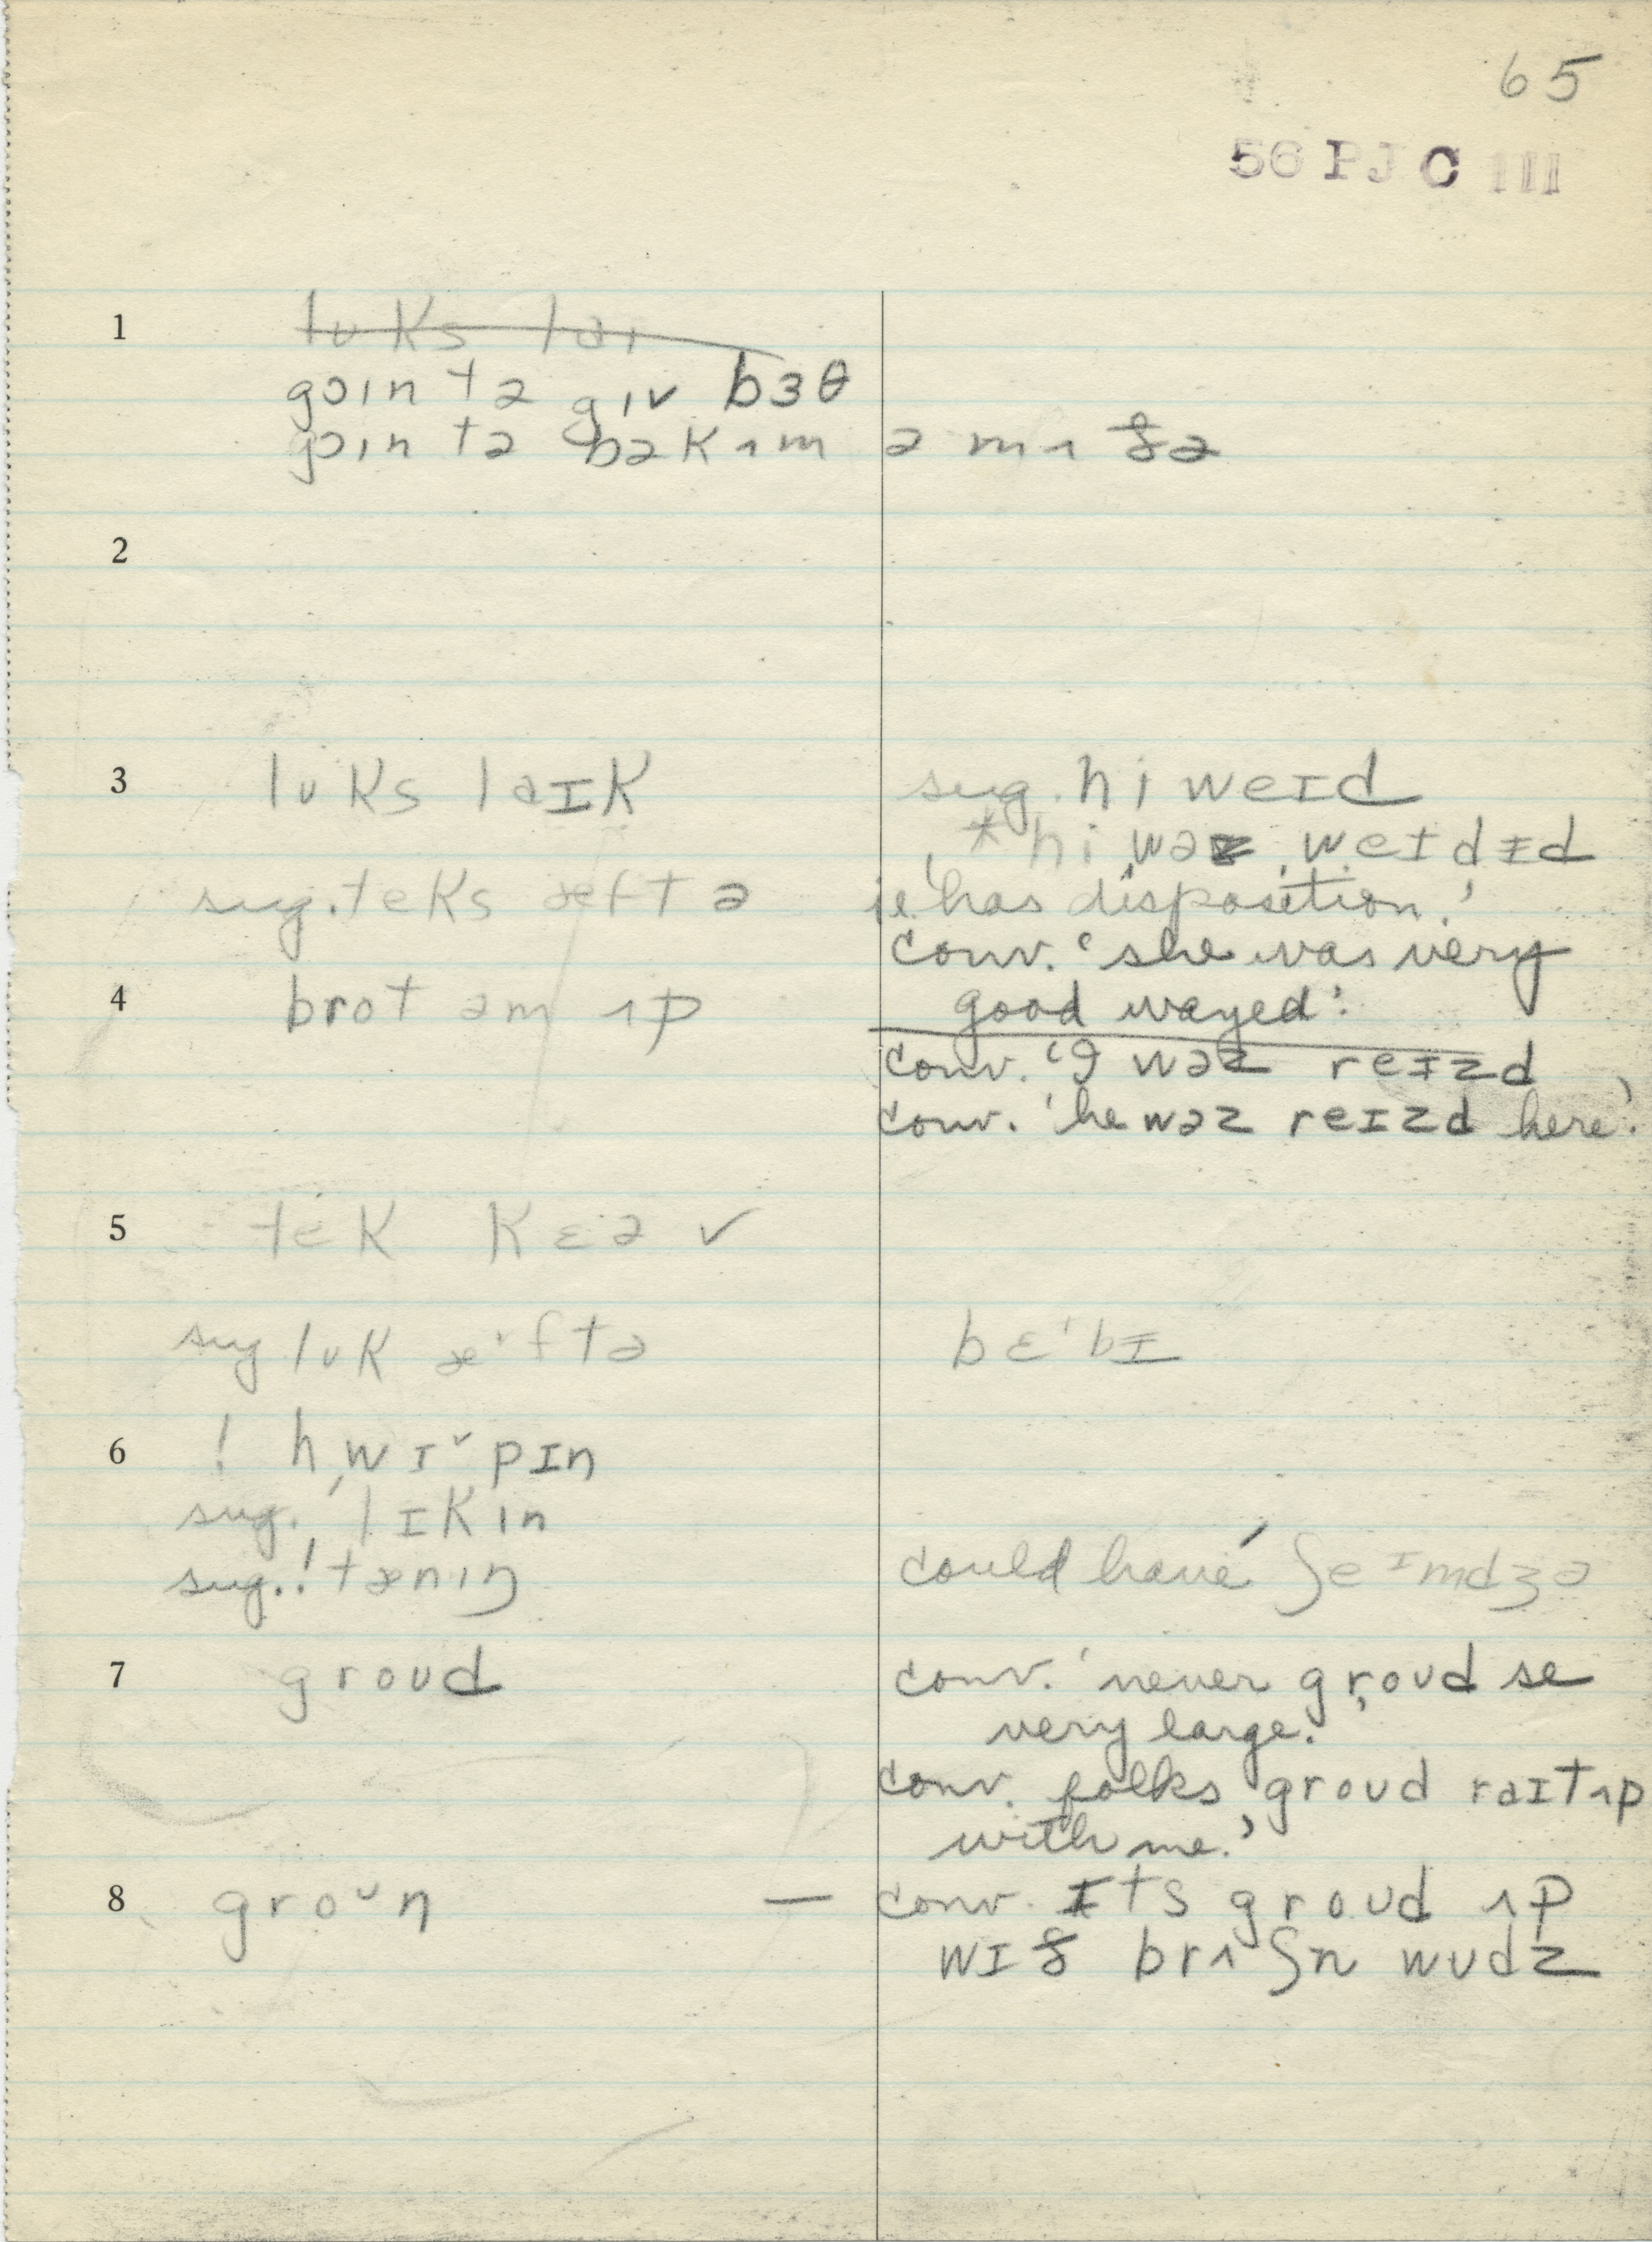 65
56 PJC III
1 lʊks lai
goin tə giv bɜθ
goin tə bəkʌm ə mʌðə
2
3 lʊks laɪk
sug. hi weɪd
*hi wəz weɪdɪd
sug. teks æftə
ie. 'has disposition.'
conv. 'she was very
4 brot əm ʌp
good wayed.'
conv. 'I wəz reɪzd
conv. 'he wəz reɪzd here.'
5 tek kɛə ✓
sug lʊk æ˞ftə
bɛ'bɪ
6 ! hwɪˇpɪn
sug. ! lɪkin
sug. ! tæniŋ
could have ʃeɪmdʒə
7 groʊd
conv. 'never groʊd so
very large.'
conv. folks groʊd raɪtʌp
with me.'
8 groʊn
— conv. ɪts groʊd ʌp
wɪð brʌʃn wʊdz